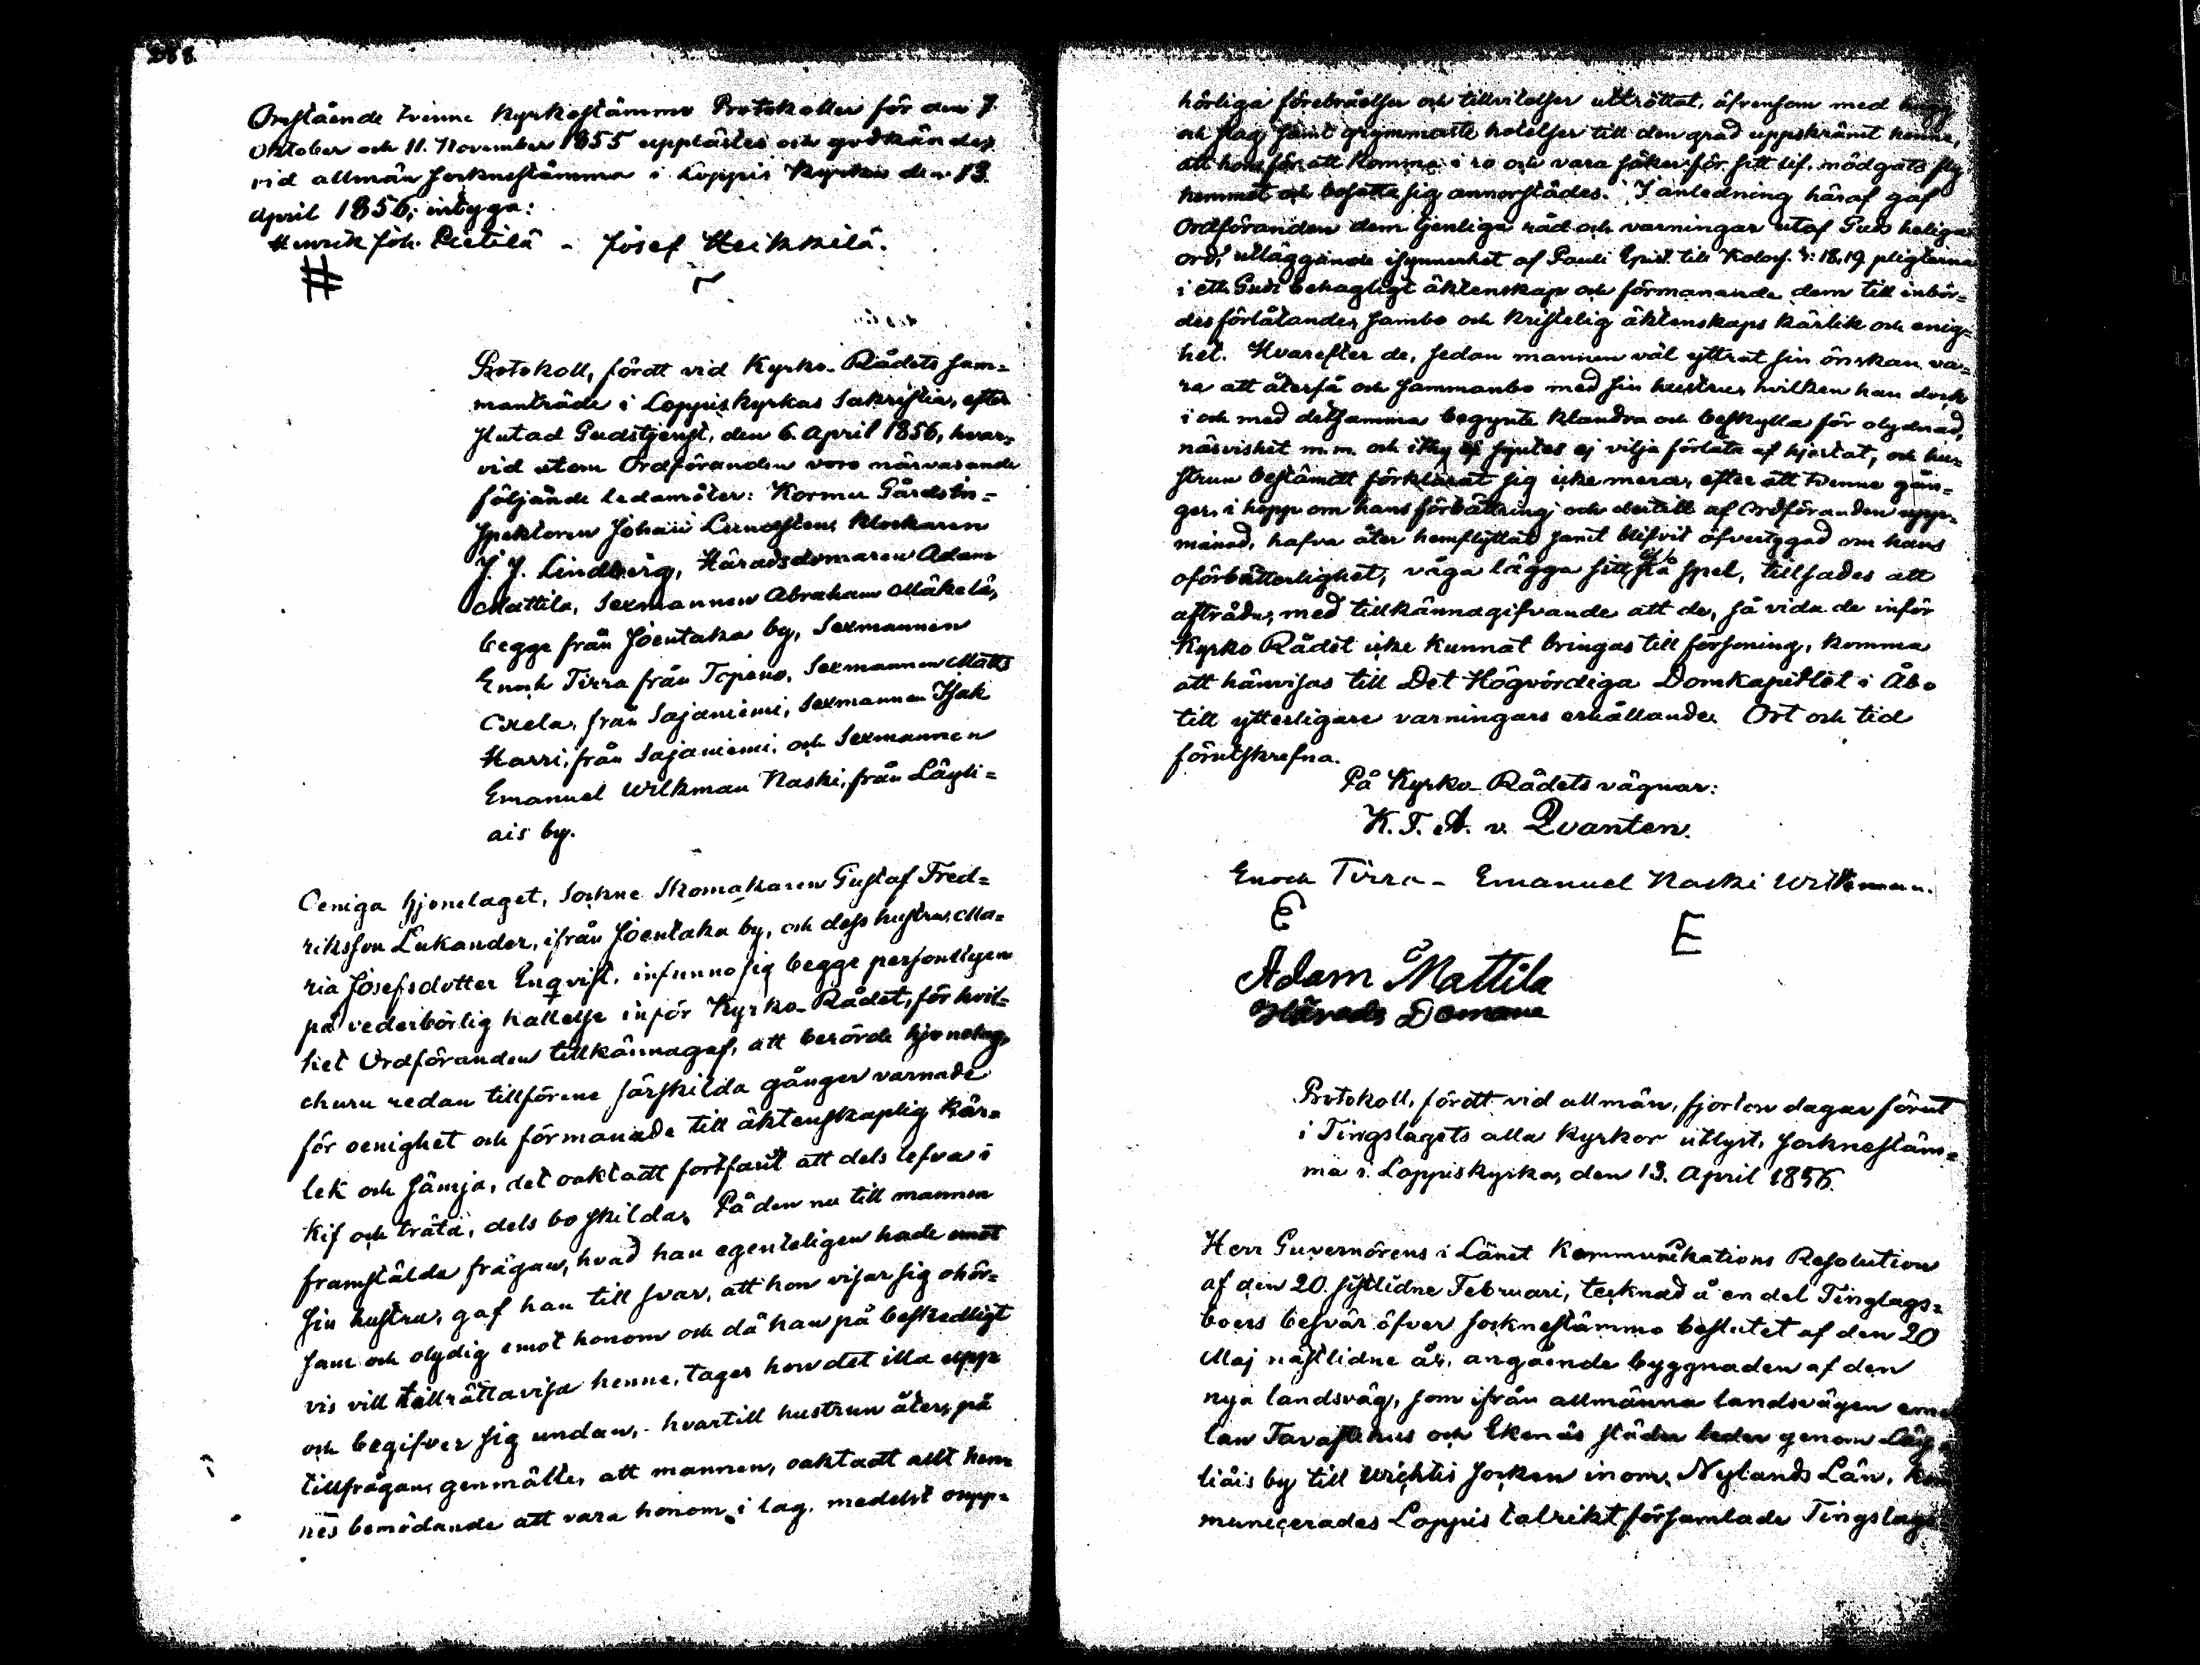 288.
Omstående tvenne Kyrkostämmo Protokoller för den 7.
Oktober och 11. November 1855 upplästes och godkändes
vid allmän Socknestämma i Loppis Kyrkan den 13.
April 1856; intyga:
Henrik Joh. Pietilä - Josef Heikkilä.
Protokoll, fördt vid Kyrko-Rådets sam=
manträde i Loppis kyrkas Sakristia, efter
slutad Gudstjenst, den 6. April 1856, hvar=
vid utom Ordföranden voro närvarande
följande ledamöter: Kornur Gårds In=
spektoren Johan Lundsten, Klockaren
J. J. Lindberg, Häradsdomaren Adam
Mattila, Sexmannen Abraham Mäkelä,
begge från Joentaka by, Sexmannen
Enoch Tirra från Topeno, Sexmannen Matts
Cxela, från Sajaniemi, Sexmannen Isak
Harri, från Sajaniemi, och Sexmannen
Emanuel Wilkman Naski, från Läyli=
ais by.
Oeniga hjonelaget, Sockne Skomakaren Gustaf Fred=
riksson Lukander, ifrån Joentaka by, och dess hustru, Ma=
ria Josefsdotter Enqvist, infunno sig begge personligen
på vederbörlig kallelse inför Kyrko-Rådet, för hvil=
ket Ordföranden tillkännagaf, att berörde hjonelag,
ehuru redan tillförene särskilda gånger varnade
för oenighet och förmanade till äktenskaplig kär=
lek och sämja, det oaktadt fortfarit att dels lefva i
kif och träta, dels bo skilda. På den nu till mannen
framstälda frågan, hvad han egenteligen hade emot
sin hustru, gaf han till svar, att hon visar sig ohör=
sam och olydig emot honom och då han på beskedligt
vis vill tillrättavisa henne, tager hon det illa upp
och begifver sig undan, - hvartill hustrun åter, på
tillfrågan, genmälte, att mannen, oaktadt allt hen=
nes bemödande att vara honom i lag, medelst oupp=
hörliga förebråelser och tillvitelser uttröttat, äfvensom med hugg
och slag samt grymmaste hotelser till den grad uppskrämt henne,
att hon för att komma i ro och vara säker för sitt lif, mödgats fly
hemmet och bosätta sig annorstädes. I anledning häraf gaf
Ordföranden dem tjenliga råd och varningar utaf Guds heliga
ord, utläggande isynnerhet af Pauli Epist. till Kolos. 3: 18, 19 pligterna
i ett Gudi behagligt äktenskap och förmanande dem till inbör=
des förlåtande, sambo och kristelig äktenskaps kärlek och enig=
het. Hvarefter de, sedan mannen väl yttrat sin önskan va=
ra att återfå och sammanbo med sin hustru, hvilken han dock
i och med detsamma begynte klandra och beskylla för olydnad,
näsvishet m.m. och syntes ej vilja förlåta af hjertat, och hu=
strun bestämdt förklarat sig icke mera, efter att tvenne gån=
ger, i hopp om hans förbättring och dertill af Ordföranden upp=
manad, hafva åter hemflyttat samt blifvit öfvertygad om hans
oförbätterlighet, våga lägga sitt lif på spel, tillsades att
afträda, med tillkännagifvande att de, så vida de inför
Kyrko Rådet icke kunnat bringas till försoning, komma
att hänvisas till Det Högvördiga Domkapitlet i Åbo
till ytterligare varningars erhållande. Ort och tid
förutskrefna.
På Kyrko-Rådets vägnar:
K. T. A. v. Qvanten.
Enoch Tirra - Emanuel Naski Wilkman.
E
E
Adam Mattila
Härads Domare
Protokoll, fördt vid allmän, fjorton dagar förut
i Tingslagets alla kyrkor utlyst, Socknestäm=
ma i Loppis kyrka, den 13. April 1856.
Herr Guvernörens i Länet Kommunikations Resolution
af den 20. sistlidne Februari, tecknad å en del Tinglags=
boers besvär öfver Socknestämmo beslutet af den 20
Maj nästlidne år, angående byggnaden af den
nya landsväg, som ifrån allmänna landsvägen emel
lan Tavastehus och Ekenäs städer leder genom Läy=
liäis by till Wichtis Socken inom Nylands Län, kom
municerades Loppis talrikt församlade Tingslags=